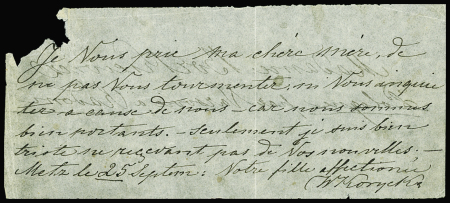 Je Vous prie ma chère mère, de
ne pas Vous tourmenter, ni Vous inquie
ter a cause de nous - car nous sommes
bien portants. - Seulement je suis bien
triste ne recevant pas de Vos nouvelles; -
Metz le 25 Septem: Votre fille affectionée